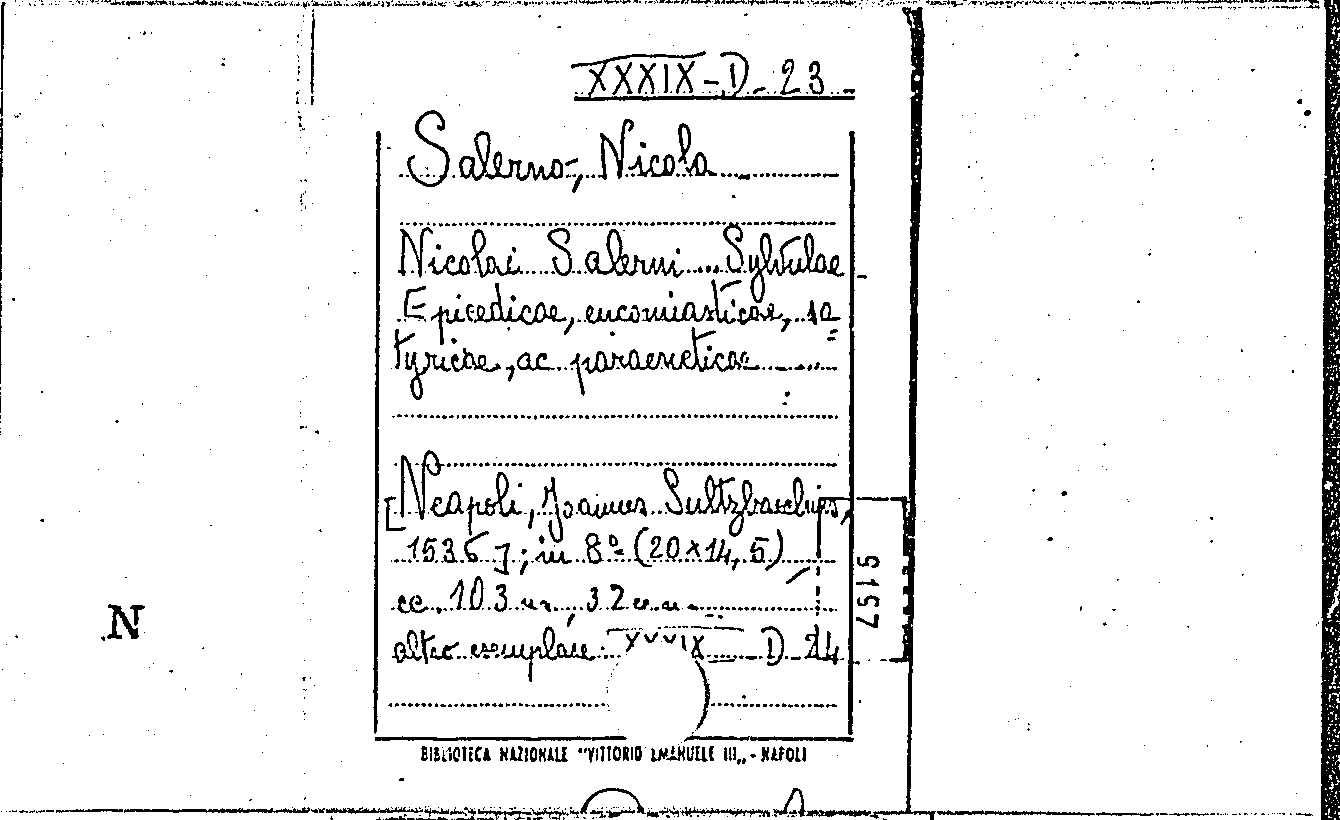 XXXIX - D - 23
Salerno, Nicola
Nicolai Salerni ... Sylvulae
Epicedicae, encomiasticae, sa=
tyricae, ac paraeneticae ......
[Neapoli, Joannes Sultzbachius,
1536]; in 8º (20x14,5)
cc. 103 nr., 32 nn.
altro exemplare: XXXIX D 24
5157
N
BIBLIOTECA NAZIONALE "VITTORIO EMANUELE III" - NAPOLI